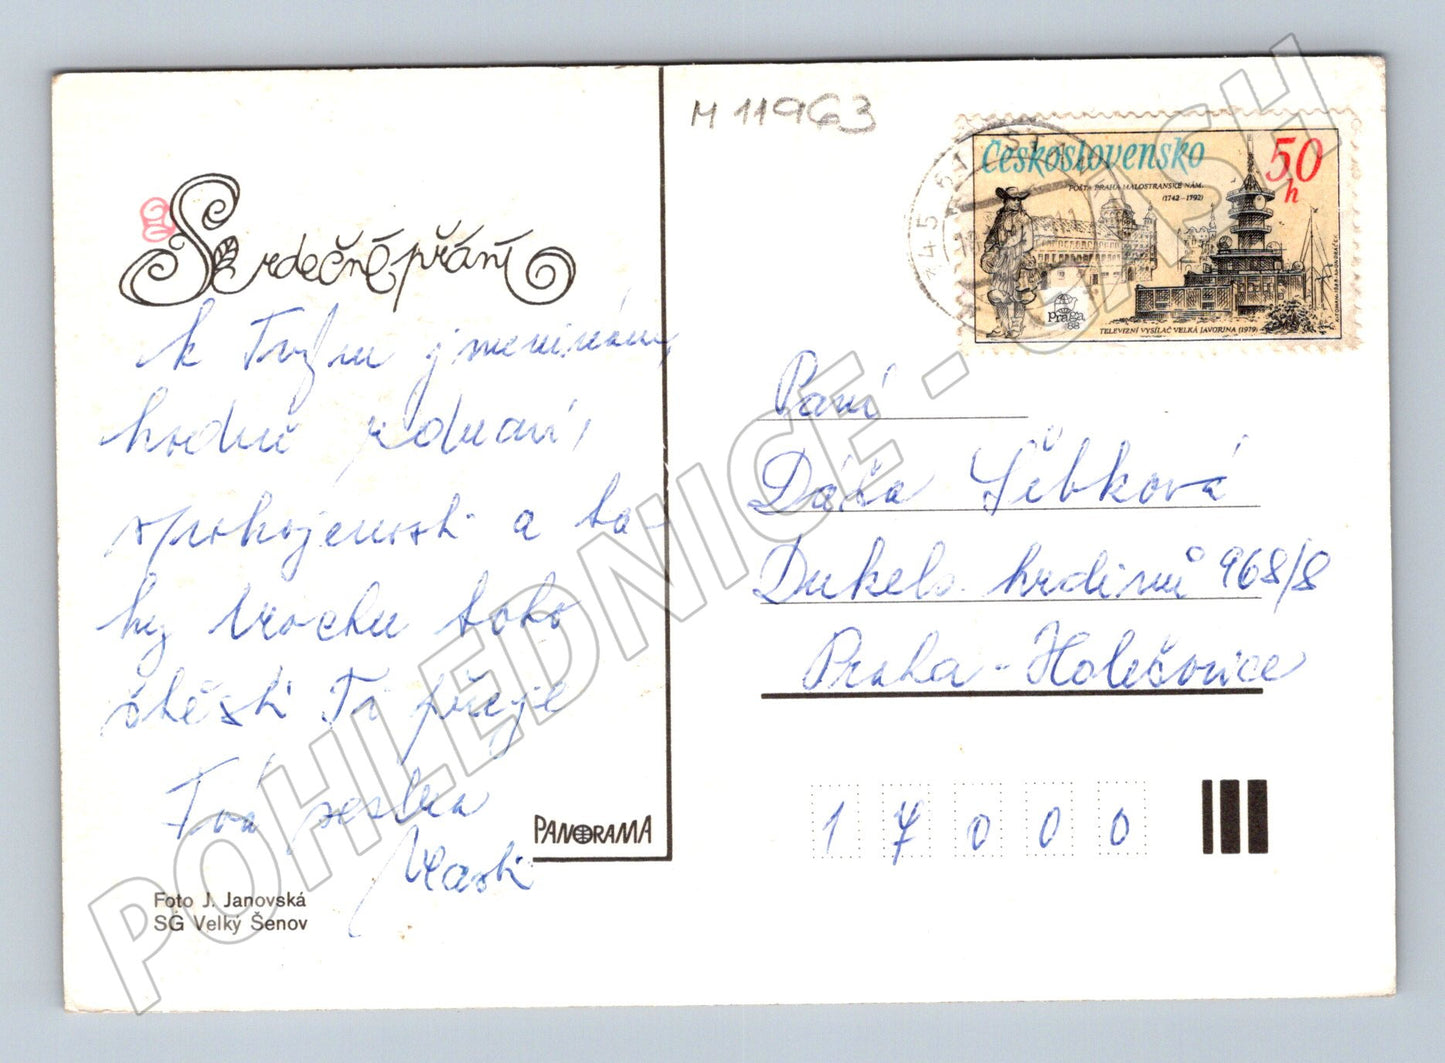 M 11963
Srdečné přání
k Tvým jmeninám,
hodně zdraví,
spokojenosti a ta-
ky trochu toho
štěstí Ti přeje
Tvá sestra
Vlasti
PANORAMA
Foto J. Janovská
SG Velký Šenov
Československo
50 h
POŠTA PRAHA MALOSTRANSKÉ NÁM.
(1742–1792)
praga
88
TELEVIZNÍ VYSÍLAČ VELKÁ JAVORINA (1979)
Paní
Dáša Šíbková
Dukels. hrdinů 968/8
Praha - Holešovice
1 7 0 0 0
POHLEDNICE - CASH